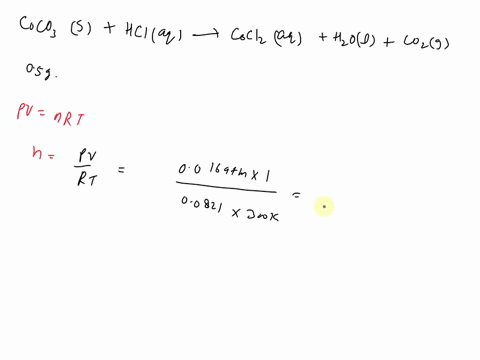 CoCO3 (s) + HCl(aq) → CoCl2 (aq) + H2O(l) + CO2(g)
0.5g.
PV = nRT
n = PV/RT = 0.016atm x 1 / 0.0821 x 300K =